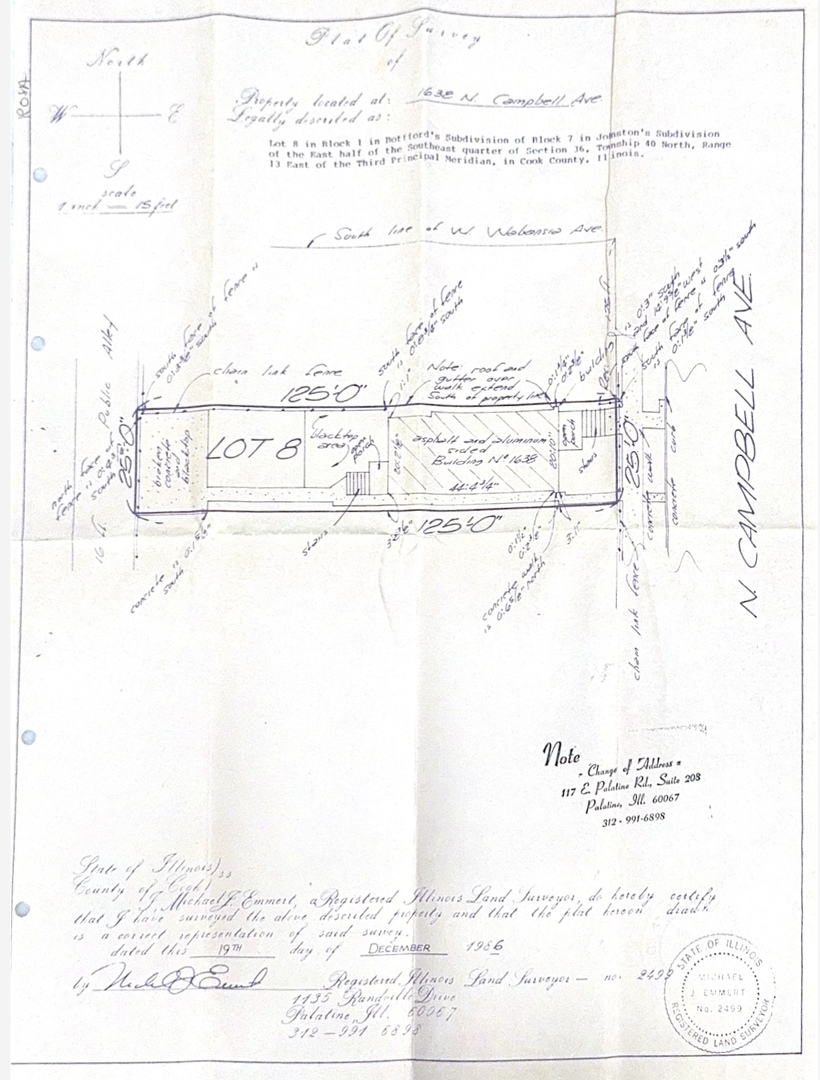 Plat Of Survey
of
North
W E
S
scale
1 inch — 15 feet
ROSA
Property located at: 1638 N. Campbell Ave.
Legally described as:
Lot 8 in Block 1 in Subdivision of Block 7 in Johnston's Subdivision
of the East half of the Southeast quarter of Section 36, Township 40 North, Range
13 East of the Third Principal Meridian, in Cook County, Illinois.
South line of W. Wabansia Ave.
south face of fence is
south
south face of fence
is south
chain link fence
125'-0"
Note: roof and
gutter over
walk extend
South of property line
building
is 0'3" south
and west
south face of fence is south
south face of fence
is south
Public Alley
16 ft.
north face of
fence is
south
25'-0"
broken
concrete
and
blacktop
LOT 8
blacktop
area
open
porch
asphalt and aluminum
sided
Building Nº 1638
44'-4¾"
20'10"
open
porch
stairs
25'-0"
concrete walk
concrete curb
N. CAMPBELL AVE.
125'-0"
stairs
3'-1"
concrete is
south
concrete walk
is 0'6⅝" north
chain link fence
Note
- Change of Address -
117 E. Palatine Rd., Suite 208
Palatine, Ill. 60067
312-991-6898
State of Illinois) ss
County of Cook)
I, Michael J. Emmert, a Registered Illinois Land Surveyor, do hereby certify
that I have surveyed the above described property and that the plat hereon drawn
is a correct representation of said survey.
dated this 19TH day of DECEMBER 1986
by Registered Illinois Land Surveyor — no. 2499
1135 Randville Drive
Palatine, Ill. 60067
312-991 6898
STATE OF ILLINOIS
MICHAEL
J. EMMERT
No. 2499
REGISTERED LAND SURVEYOR